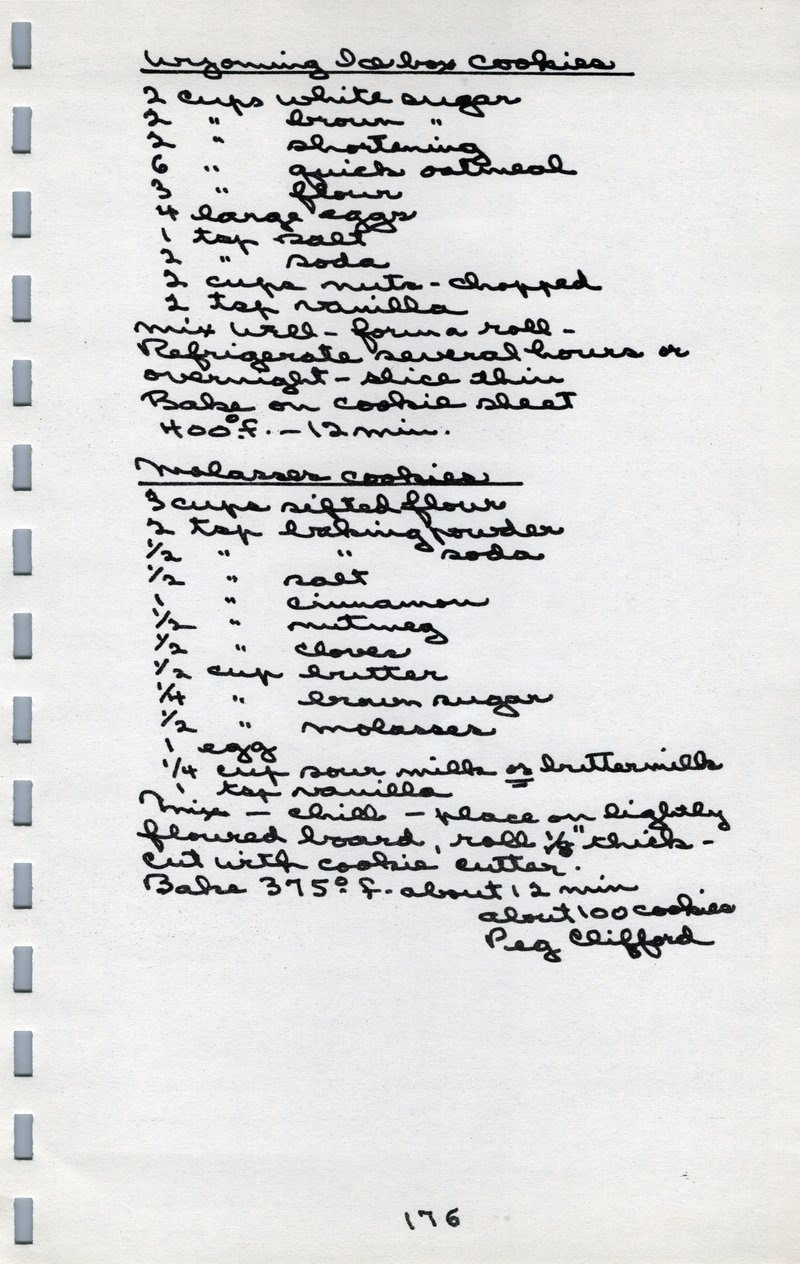 Wyoming Ice box Cookies
2 cups white sugar
2 " brown "
2 " shortening
6 " quick oatmeal
3 " flour
4 large eggs
1 tsp salt
2 " soda
2 cups nuts - chopped
2 tsp vanilla
Mix well - form a roll -
Refrigerate several hours or
overnight - slice thin
Bake on cookie sheet
400° f. - 12 min.
Molasses cookies
3 cups sifted flour
2 tsp baking powder
1/2 " " soda
1/2 " salt
1 " cinnamon
1/2 " nutmeg
1/2 " cloves
1/2 cup butter
1/4 " brown sugar
1/2 " molasses
1 egg
1/4 cup sour milk or buttermilk
1 tsp vanilla
Mix - chill - place on lightly
floured board, roll 1/8" thick -
cut with cookie cutter.
Bake 375° f. about 12 min
about 100 cookies
Peg Clifford
176